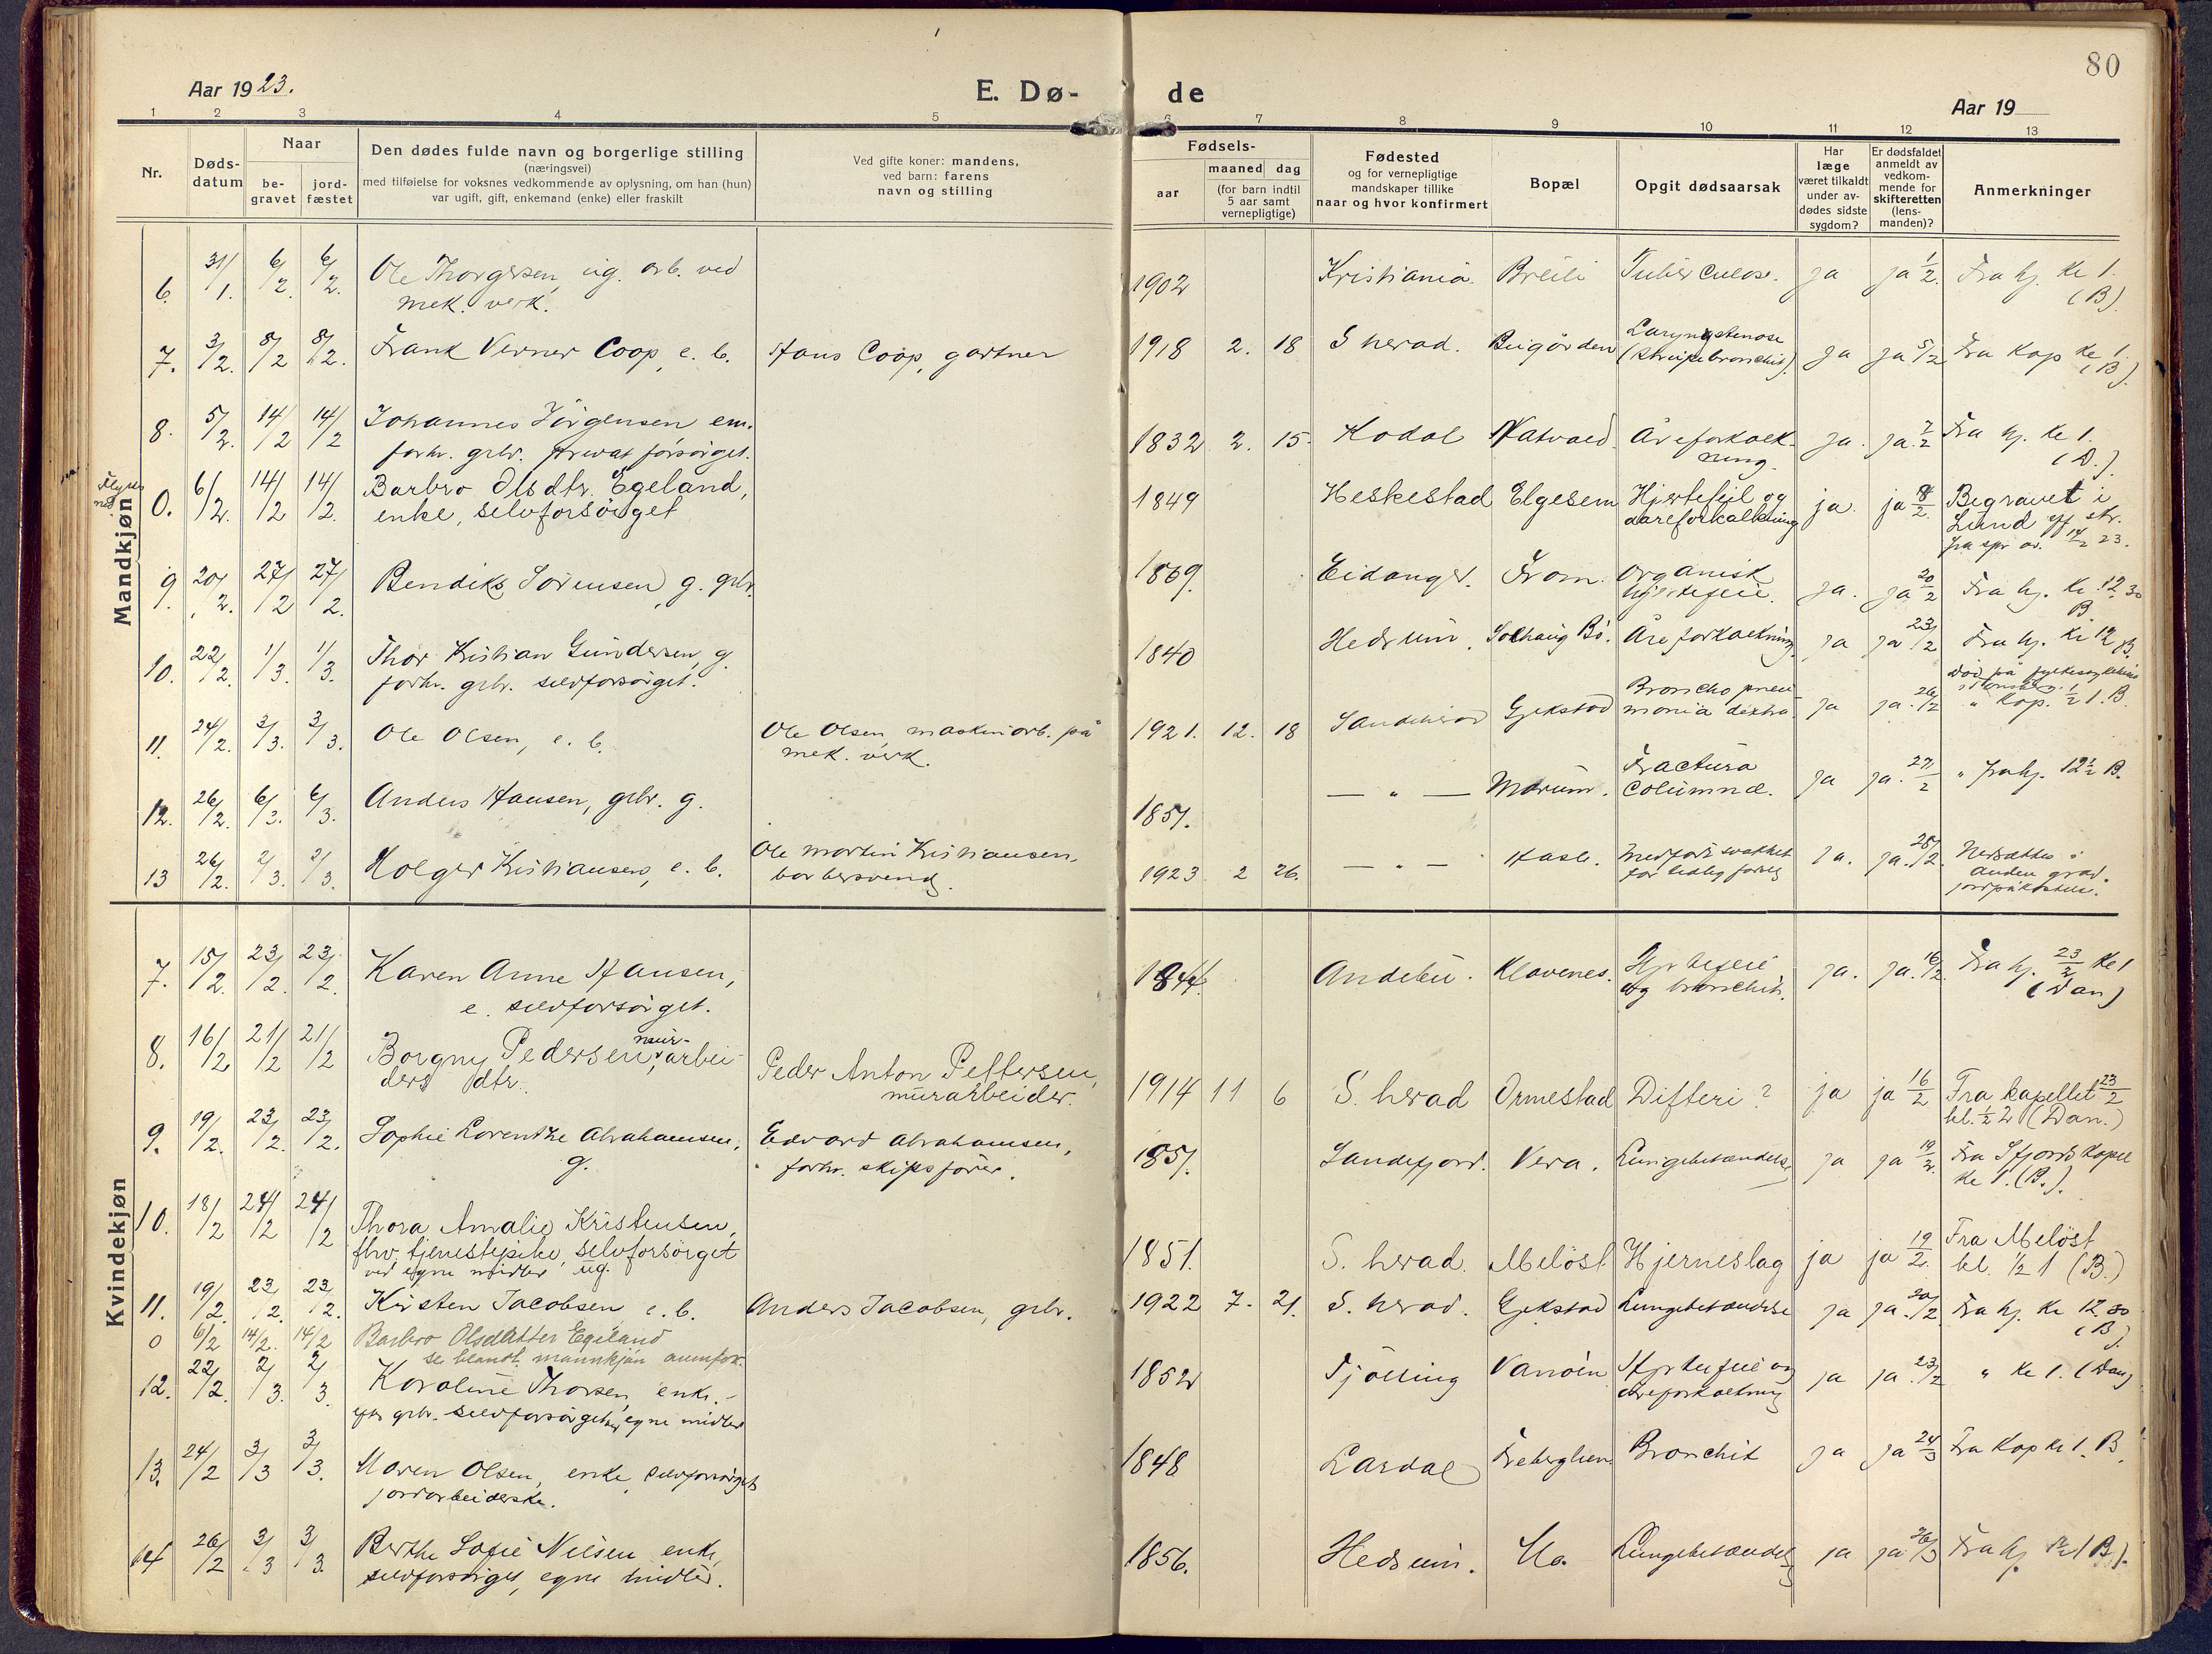 80
Aar 1923.
E. Dø- de
Aar 19
1 2 3 4 5 6 7 8 9 10 11 12 13
Nr.
Døds-
datum
Naar
be-
gravet
jord-
fæstet
Den dødes fulde navn og borgerlige stilling
(næringsvei)
med tilføielse for voksnes vedkommende av oplysning, om han (hun)
var ugift, gift, enkemand (enke) eller fraskilt
Ved gifte koner: mandens,
ved barn: farens
navn og stilling
Fødsels-
aar
maaned dag
(for barn indtil
5 aar samt
vernepligtige)
Fødested
og for vernepligtige
mandskaper tillike
naar og hvor konfirmert
Bopæl
Opgit dødsaarsak
Har
læge
været tilkaldt
under av-
dødes sidste
sygdom?
Er dødsfaldet
anmeldt av
vedkom-
mende for
skifteretten
(lens-
manden)?
Anmerkninger
Mandkjøn
6. 31/1. 6/2. 6/2. Ole Thorgersen, ug. arb. ved
mek. verk.
1902 Kristiania. Breili Tuberculose. ja ja 1/2. Fra hj. kl 1.
(B).
7. 3/2. 8/2 8/2. Frank Verner Coop, e. b. Hans Coop, gartner
1918 2. 18 S herad. Bugården Laryngstenose
(strupebronchit) ja ja 5/2 Fra kap kl 1.
(B).
8. 5/2. 14/2 14/2 Johannes Jörgensen em.
forh. grbr. privat forsörget.
1832 2. 15. Kodal Natvald Åreforkalk-
ning. ja. ja. 7/2 Fra hj. kl 1.
(D.).
0. 6/2. 14/2 14/2. Barbro Olsdtr. Egeland,
enke, selvforsörget
1849 Heskestad Elgesem Hjertefeil og
aareforkalkning ja. ja 8/2. Begravet i
Lund
9. 20/2. 27/2 27/2. Bendiks Sörensen, g. grbr.
1869. Eidanger. Fram. Organisk
hjertefeil. ja. ja 20/2 Fra hj. kl 12.30
B.
10. 22/2. 1/3. 1/3. Thor Kristian Gundersen, g.
forh. grbr. selvforsörget.
1840 Hedrum. Solhaug Bö. Åreforkalkning ja ja 23/2 Fra hj. kl 12 B.
11. 24/2. 3/3. 3/3. Ole Olsen, e. b. Ole Olsen, maskinarb. på
mek. verk.
1921. 12. 18 Sandeherad Gjekstad Broncho pneu-
monia dextra. ja ja. 26/2
12. 26/2. 6/3. 6/3. Anders Hansen, grbr. g.
1857. — " — Marum. Fractura
columnæ. ja ja. 27/2 " fra hj. 12 1/2 B.
13 26/2. 2/3. 2/3. Holger Kristiansen, e. b. Ole Martin Kristiansen,
barbersvend.
1923 2 26. — " — Hasle. Medfödt svakhet
for tidlig födsel ja. ja. 28/2. Nedsættes i
anden grav.
jordpåkastelse.
Kvindekjøn
7. 15/2. 23/2. 23/2. Karen Anne Hansen,
e. selvforsörget.
1844. Andebu. Klavenes. Hjertefeil
og bronchit. ja. ja. 16/2 Fra hj. 23/2 kl 1
(Dan)
8. 16/2 21/2 21/2 Borgny Pedersen, mur-arbei-
ders dtr. Peder Anton Pettersen,
murarbeider.
1914 11 6 S. herad Ormestad Difteri? ja ja 16/2 Fra kapellet 23/2
kl. 1/2 2 (Dan.)
9. 19/2. 23/2. 23/2. Sophie Lorentze Abrahamsen,
g. Edvard Abrahamsen,
forhv. skipsförer.
1857. Sandefjord. Vera. Lungebetændelse ja ja 19/2. Fra Sfjords kapel
kl 1. (B.).
10. 18/2 24/2 24/2 Thora Amalie Kristensen,
fhv. tjenestepike, selvforsörget
ved egne midler ug.
1851. S. herad. Melöst Hjerneslag ja ja 19/2. Fra Melöst
kl. 1/2 1 (B.)
11. 19/2. 23/2. 23/2. Kirsten Jacobsen e. b. Anders Jacobsen, grbr.
1922 7. 21. S. herad. Gjekstad Lungebetændelse ja ja. 20/2 Fra hj. kl 12.30
(B).
0 6/2 14/2. 14/2 Barbro Olsdatter Egeland
se blandt mannkjön
12. 22/2. 2/3. 2/3. Karoline Thorsen, enke
eft. grbr. selvforsörget av egne midler
1852 Tjölling Vanöen Hjertefeil og
åreforkalkning ja ja. 23/2 " kl 1. (Dan)
13. 24/2 3/3 3/3. Maren Olsen, enke, selvforsörget
jordarbeiderske.
1848 Lardal Breberghen Bronchit ja ja 24/3 Fra kap kl 1. B.
14 26/2 3/3 3/3. Berthe Sofie Nilsen enke,
selvforsörget, egne midler.
1856. Hedrum. Mo. Lungebetændelse ja ja 26/3 Fra hj. kl 1 B.).